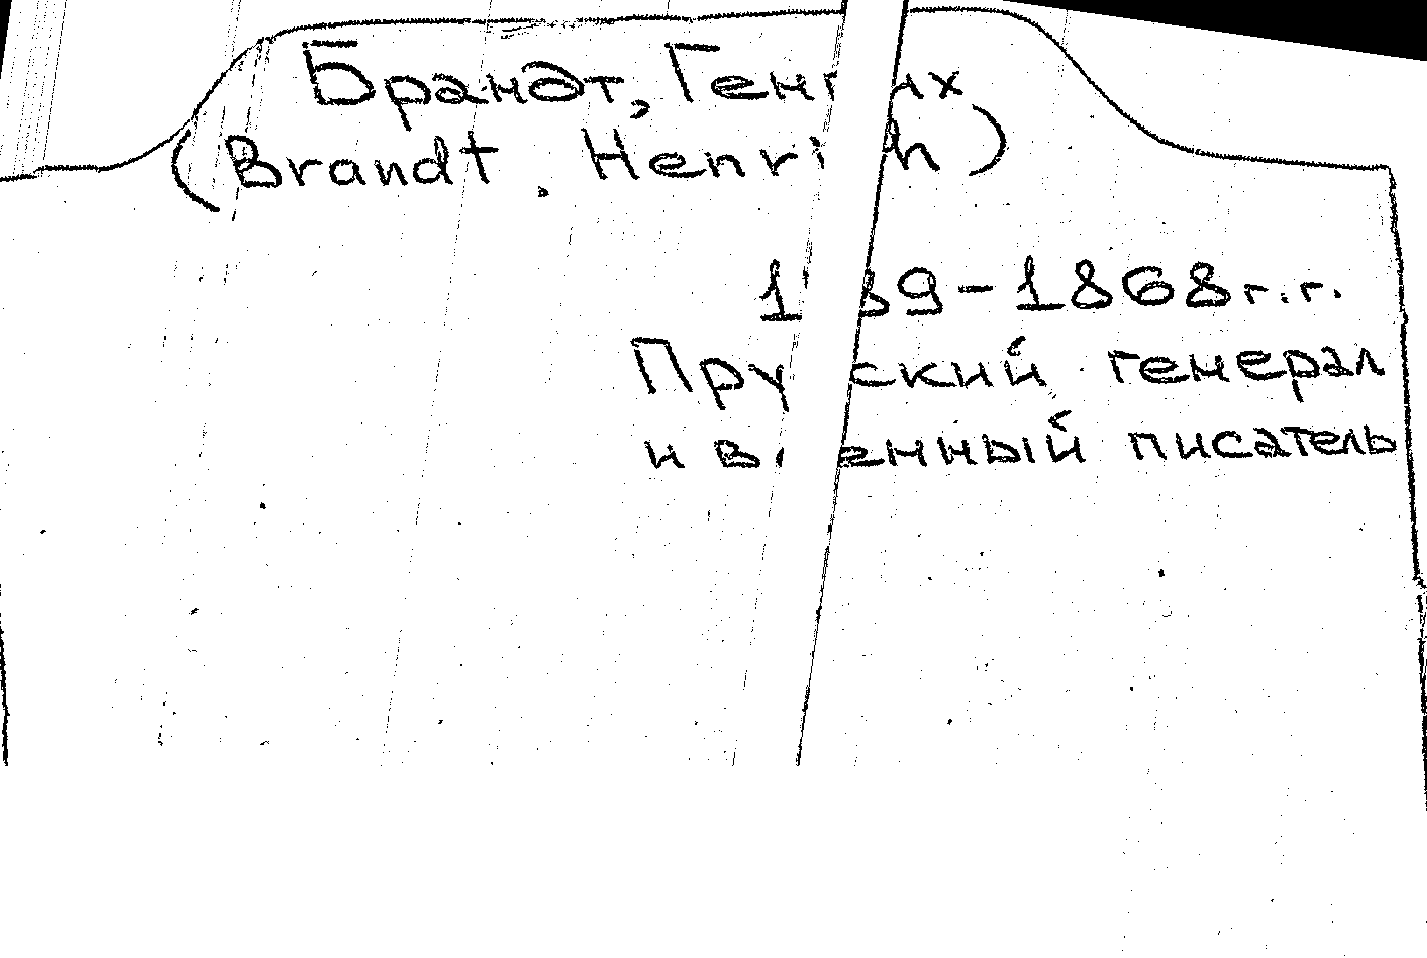 Брандт, Генрих
(Brandt. Henrich)
1789-1868г.г.
Прусский генерал
и военный писатель